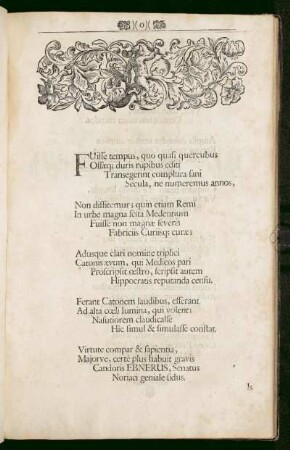 (o)
FUisse tempus, quo quasi quercubus
Ossiq; duris rupibus editi
Transegerint complura sani
Secula, ne numeremus annos,
Non diffitemur; quin etiam Remi
In urbe magna scita Medentium
Fuisse non magnæ severis
Fabriciis Curiisq; curæ:
Adusque clari nomine triplici
Catonis ævum, qui Medicos pari
Proscripsit œstro, scripsit autem
Hippocratis reputanda censu.
Ferant Catonem laudibus, efferant
Ad alta cœli lumina, qui volent:
Nasutiorem claudicasse
Hic simul & simulasse constat.
Virtute compar & sapientia,
Majorve, certè plus habuit gravis
Candoris EBNERUS, Senatus
Noriaci geniale sidus.
Is